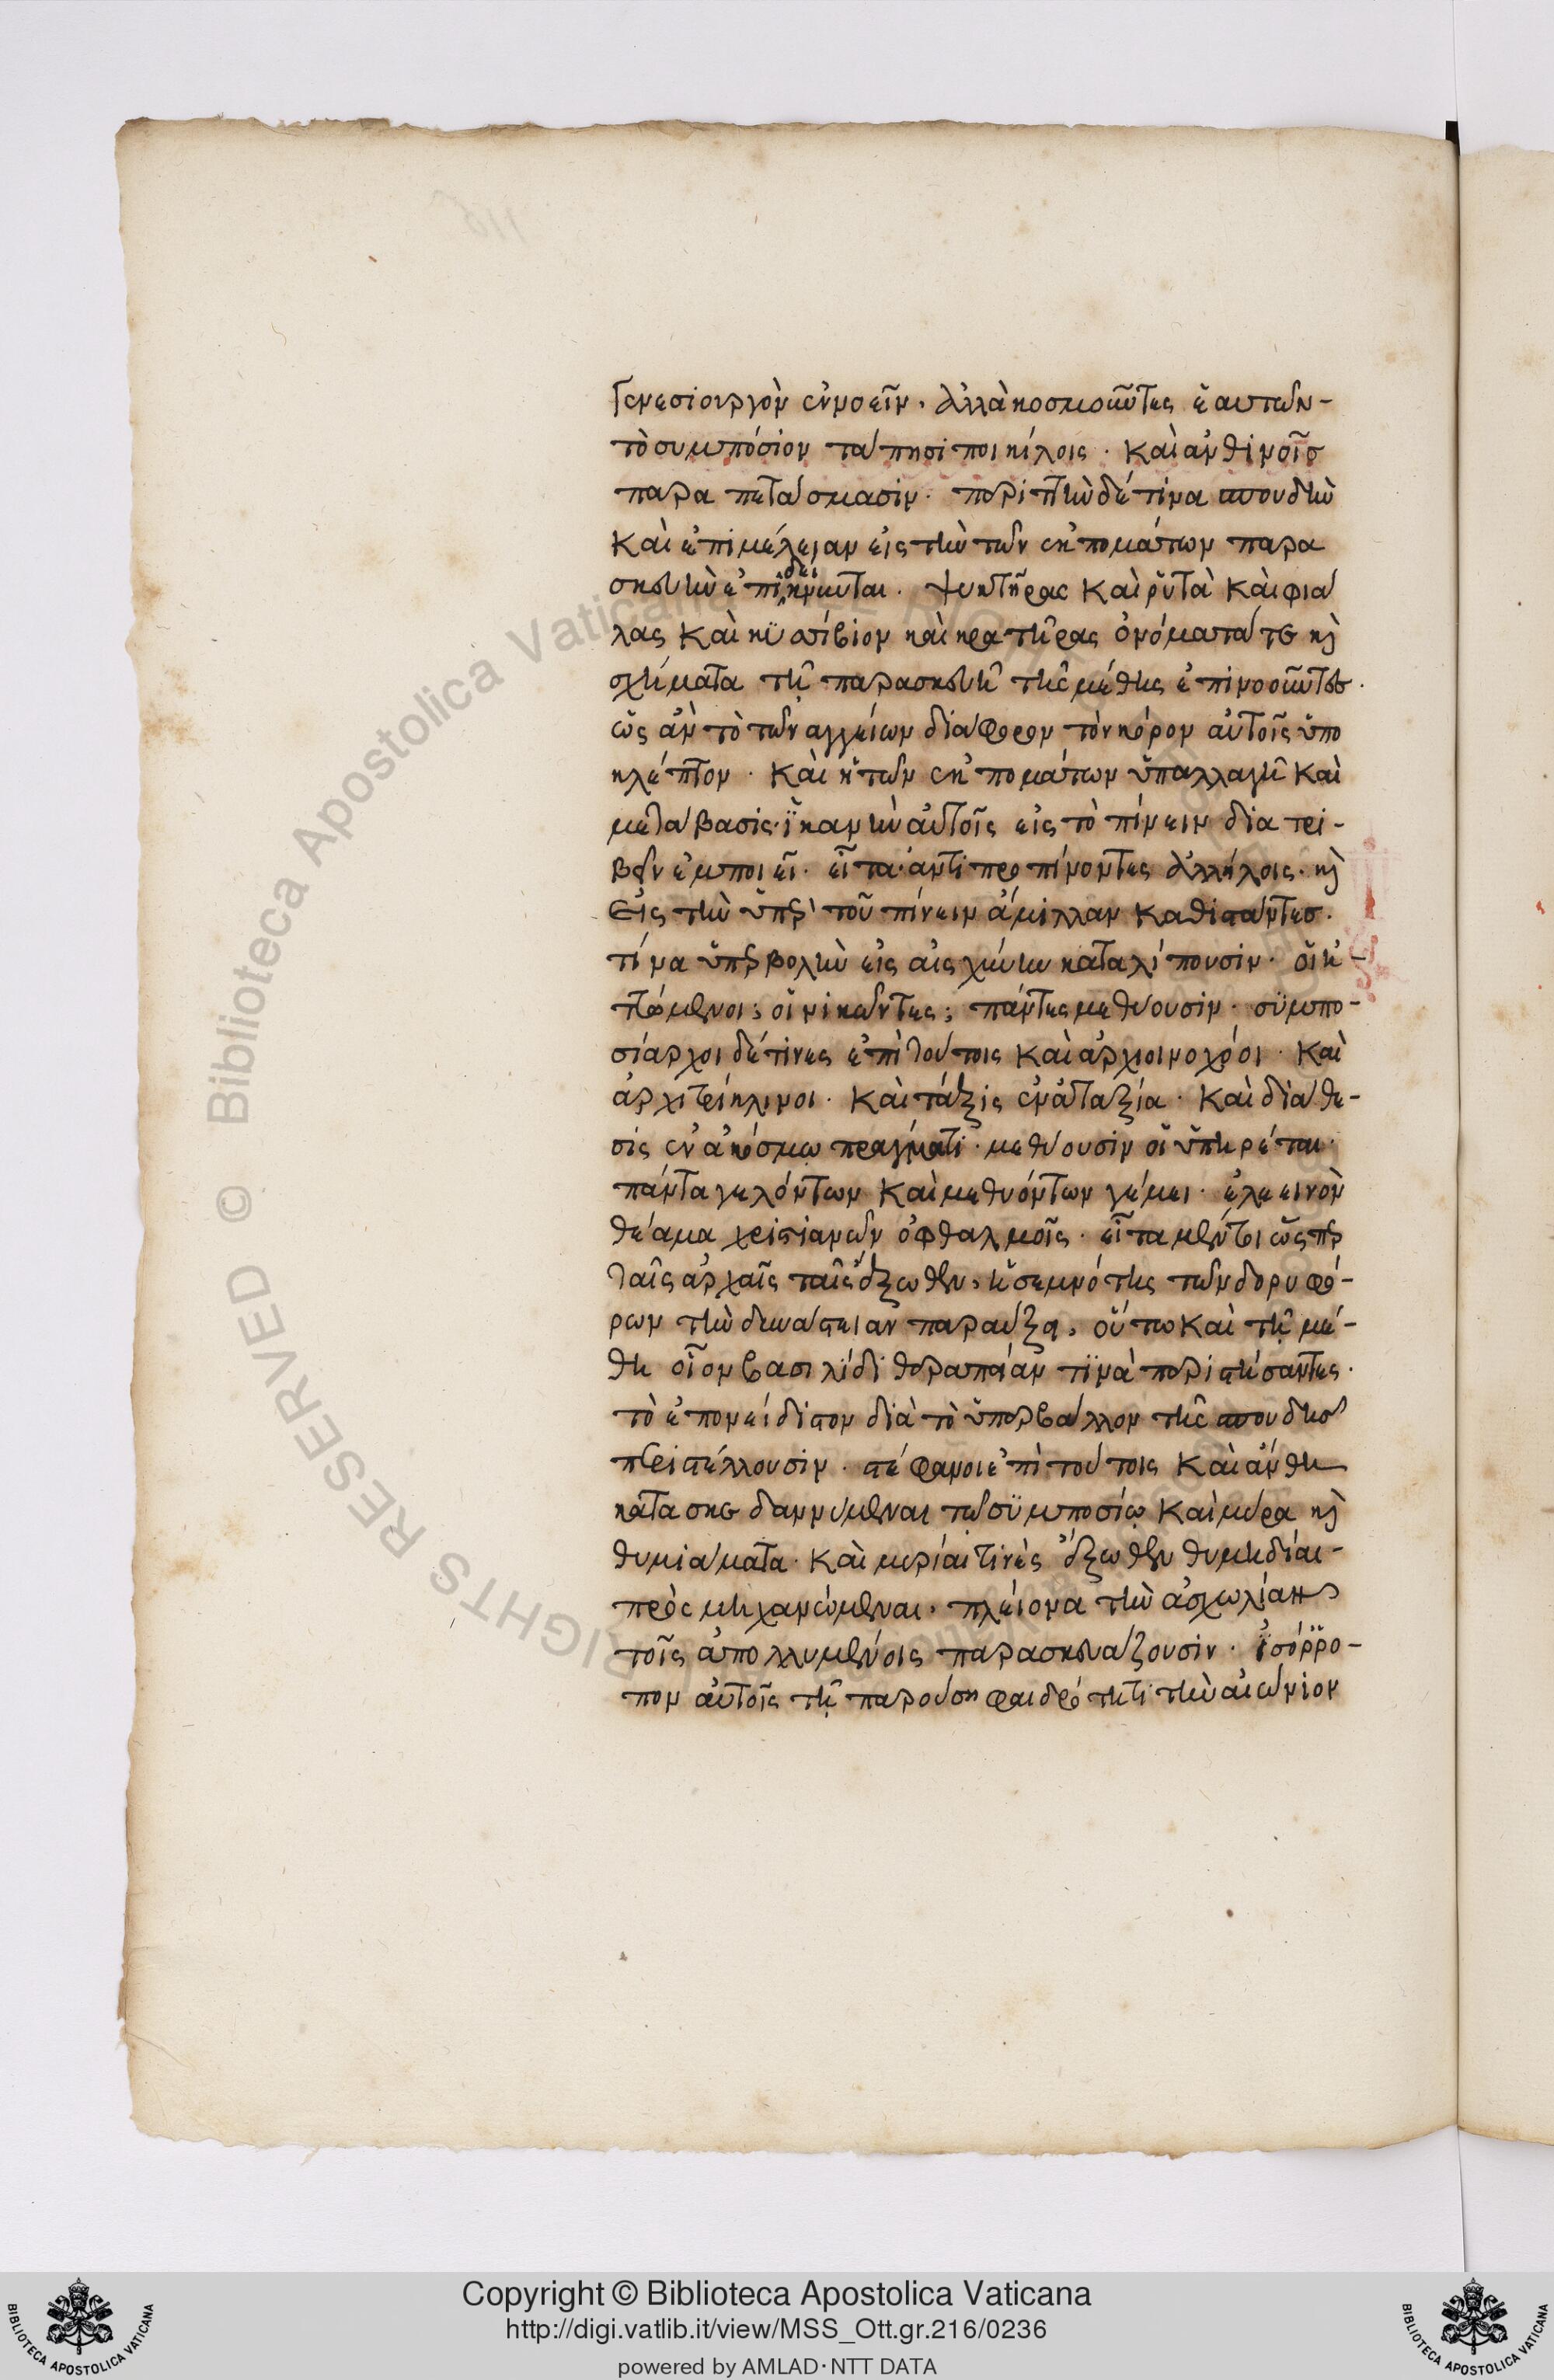 Γενεσιουργὸν ἐννοεῖν. ἀλλὰ κοσμοῦντες ἑαυτῶν-
τὸ συμπόσιον τάπησι ποικίλοις. καὶ ἀνθινοῖς
παραπετάσμασιν. περιττὴν δέ τινα σπουδὴν
καὶ ἐπιμέλειαν εἰς τὴν τῶν ἐκπομάτων παρα
σκευὴν ἐπιδείκνυνται. ψυκτῆρας καὶ ῥυτὰ καὶ φιά
λας καὶ κισσίβιον καὶ κρατῆρας ὀνόματά τε καὶ
σχήματα τῇ παρασκευῇ τῆς μέθης ἐπινοοῦντες.
ὡς ἂν τὸ τῶν ἀγγείων διάφορον τὸν κόρον αὐτοῖς ὑπο
κλέπτον. καὶ ἡ τῶν ἐκπομάτων ὑπαλλαγὴ καὶ
μετάβασις. ἱκανὴν αὐτοῖς εἰς τὸ πίνειν διατρι-
βὴν ἐμποιεῖ. εἶτα ἀντιπροπίνοντες ἀλλήλοις. καὶ
Εἰς τὴν ὑπὲρ τοῦ πίνειν ἅμιλλαν καθιστάντες.
τίνα ὑπερβολὴν εἰς αἰσχύνην καταλίπουσιν. οἱ ἡ-
ττώμενοι; οἱ νικῶντες; πάντες μεθύουσιν. συμπο-
σίαρχοι δέ τινες ἐπὶ τούτοις καὶ ἀρχιοινοχόοι. καὶ
ἀρχιτρίκλινοι. καὶ τάξις ἐν ἀταξία. καὶ διάθε-
σις ἐν ἀκόσμω πράγματι. μεθύουσιν οἱ ὑπηρέται.
πάντα γελόντων καὶ μεθυόντων γέμει. ἐλεεινὸν
θέαμα χριστιανῶν ὀφθαλμοῖς. εἶτα μέντοι ὥσπερ
ταῖς ἀρχαῖς ταῖς ἔξωθεν, ἡ σεμνότης τῶν δορυφό-
ρων τὴν δυναστειαν παραύξει, οὕτω καὶ τῇ μέ-
θη οἷον βασιλίδι θεραπείαν τινὰ περιστήσαντες.
τὸ ἐπονείδιστον διὰ τὸ ὑπερβάλλον τῆς σπουδῆς
περιστέλλουσιν. στέφανοι ἐπὶ τούτοις καὶ ἄνθη
κατασκεδαννύμεναι τῷ συμποσίῳ καὶ μύρα καὶ
θυμιάματα. καὶ μυρίαι τινὲς ἔξωθεν θυμηδίαι-
προςμηχανώμεναι, πλείονα τὴν ἀσχωλίαν
τοῖς ἀπολλυμένοις παρασκευάζουσιν. ἰσόρρο-
πον αὐτοῖς τῇ παρούσῃ φαιδρότητι τὴν αἰώνιον
Copyright © Biblioteca Apostolica Vaticana
http://digi.vatlib.it/view/MSS_Ott.gr.216/0236
powered by AMLAD·NTT DATA